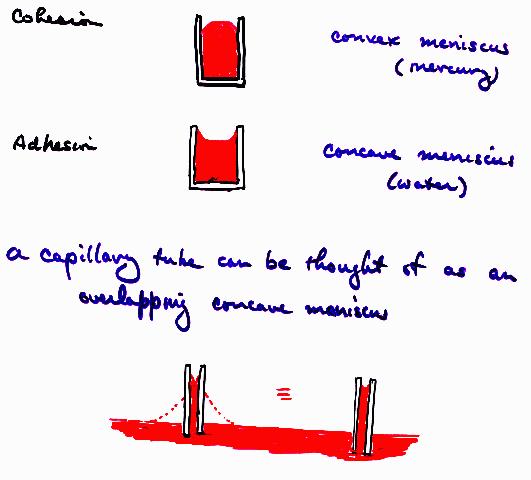 Cohesion
convex meniscus
(mercury)
Adhesion
concave meniscus
(water)
a capillary tube can be thought of as an
overlapping concave meniscus
=